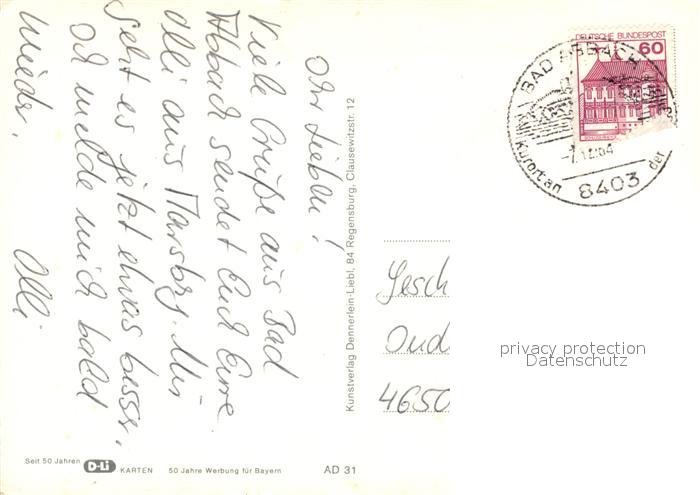 Ihr Lieben!
Viele Grüße aus Bad
Abbach sendet Euch Eure
Olli aus Marsberg. Mir
geht es jetzt etwas besser,
Ich melde mich bald
wieder.
Olli
Kunstverlag Dennerlein-Liebl, 84 Regensburg, Clausewitzstr. 12
Seit 50 Jahren D-Li KARTEN 50 Jahre Werbung für Bayern
AD 31
DEUTSCHE BUNDESPOST
60
BAD ABBACH
Kurort an der
8403
Gesch
4650
privacy protection
Datenschutz